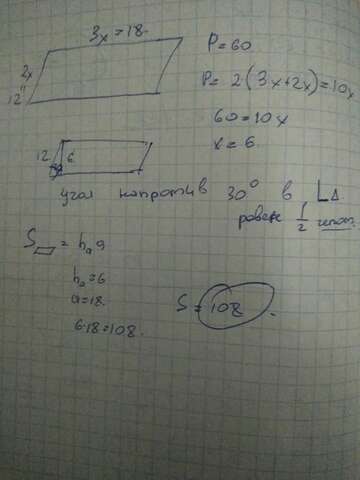 3x = 18.
2x
12
P = 60
P = 2(3x+2x) = 10x
60 = 10x
x = 6.
12
6
угол напротив 30° в
равен 1/2
S = hₐ a
hₐ = 6
a = 18.
6·18 = 108.
S = 108.